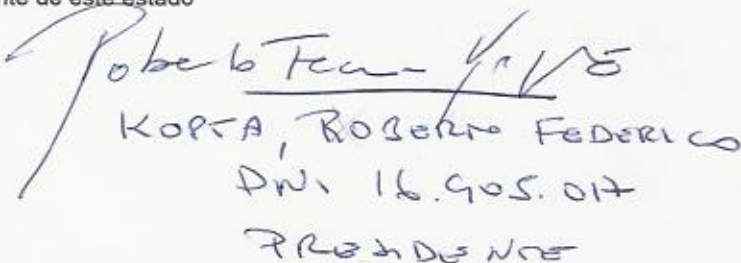 de este estado
Roberto
KOPTA, ROBERTO FEDERICO
DNI 16.905.017
PRESIDENTE